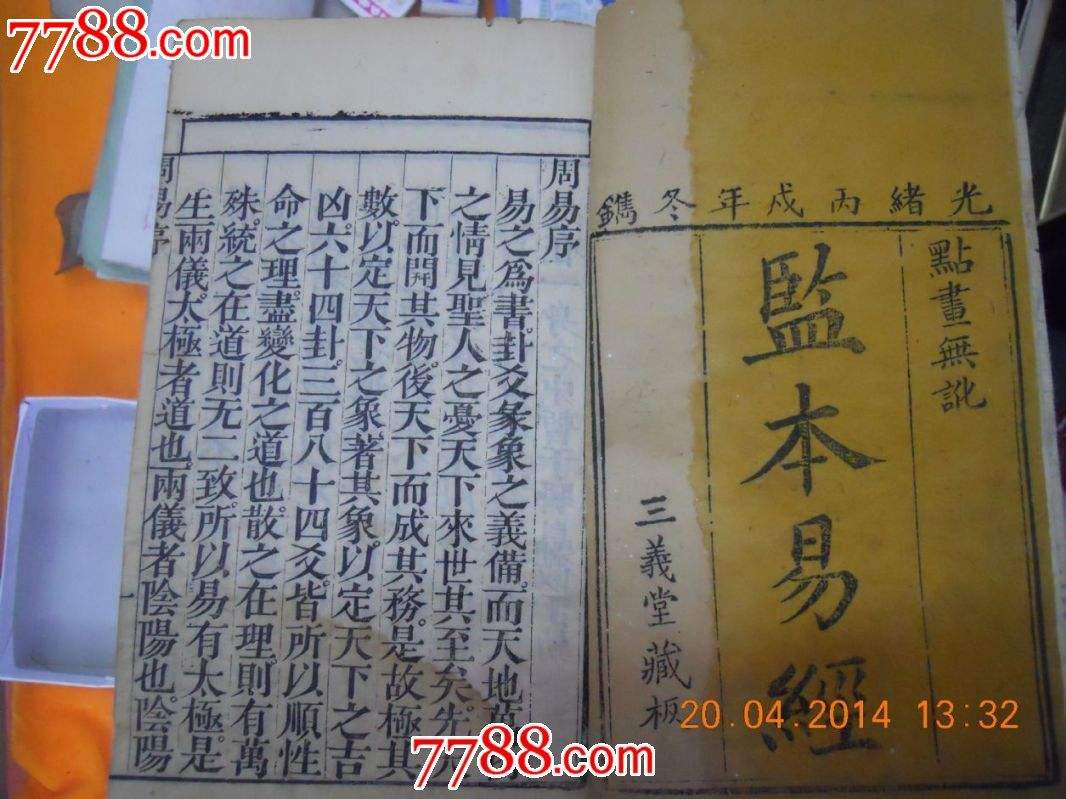 7788.com
7788.com
光緒丙戌年冬鐫
點畫無訛
監本易經
三義堂藏板
周易序
易之爲書。卦爻彖象之義備。而天地
之情見。聖人之憂天下來世其至矣。先
下而開其物。後天下而成其務。是故極其
數。以定天下之象。著其象。以定天下之吉
凶。六十四卦。三百八十四爻。皆所以順性
命之理。盡變化之道也。散之在理。則有萬
殊。統之在道則无二致。所以易有太極。是
生兩儀。太極者道也。兩儀者陰陽也。陰陽
周易序
一
20.04.2014 13:32
7788.com